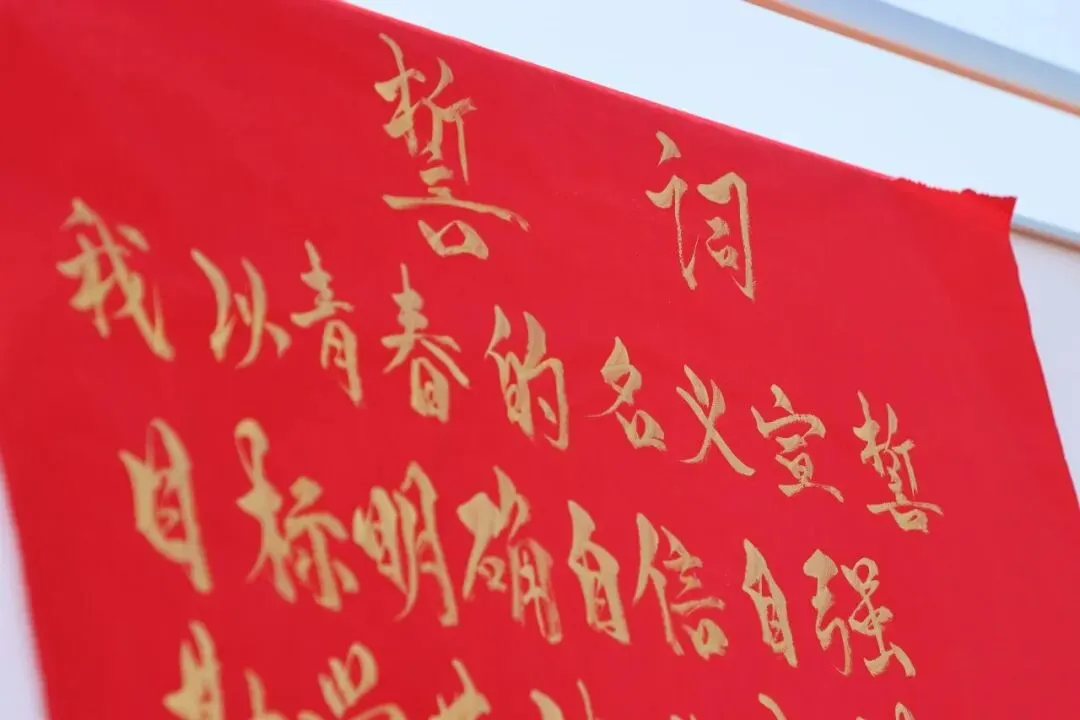 誓词
我以青春的名义宣誓
目标明确自信自强
勤学